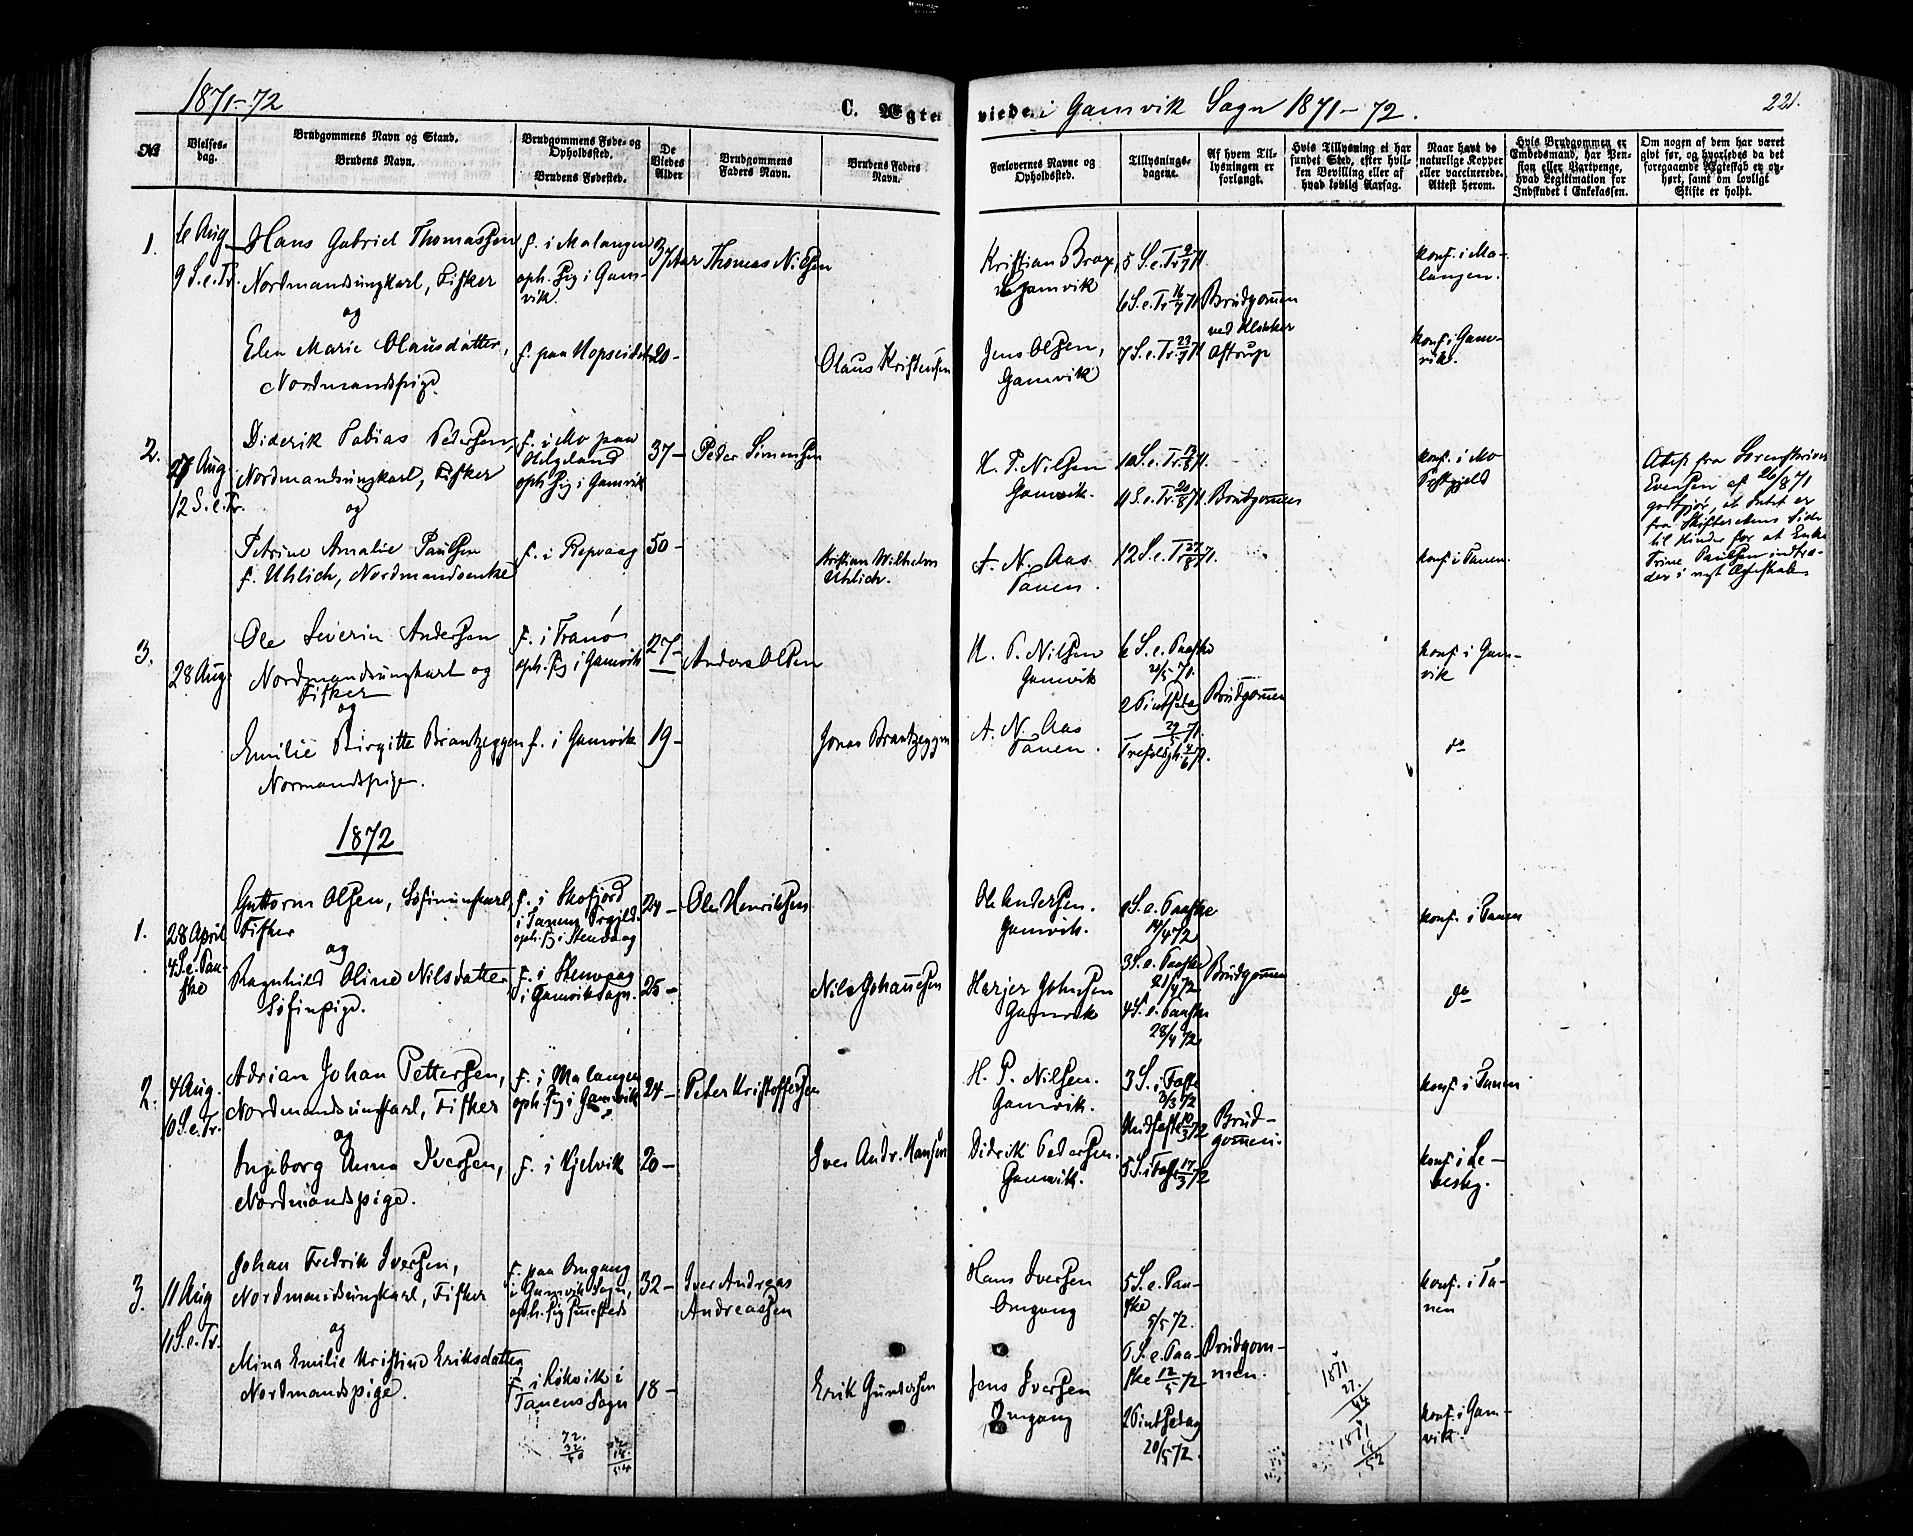 1871-72
C. Ægteviede i Gamvik Sogn 1871-72.
221.
№
Vielses-dag.
Brudgommens Navn og Stand.
Brudens Navn.
Brudgommens Føde- og Opholdssted.
Brudens Fødested.
De Viedes Alder
Brudgommens Faders Navn.
Brudens Faders Navn.
Forlovernes Navne og Opholdssted.
Tillysnings-dagene.
Af hvem Tillysningen er forlangt.
Hvis Tillysning ei har fundet Sted, efter hvilken Bevilling eller af hvad lovlig Aarsag.
Naar havt de naturlige Kopper eller vaccinerede. Attest herom.
Hvis Brudgommen er Embedsmand, har Pension eller Vartpenge, hvad Legitimation for Indskudet i Enkekassen.
Om nogen af dem har været givt før, og hvorledes da det foregaaende Ægteskab er ophørt, samt om lovligt Skifte er holdt.
1.
6 Aug
9 S.e.Tr.
Hans Gabriel Thomassen
Nordmandsungkarl, Fisker
og
Elen Marie Olausdatter,
Nordmandspige.
f. i Malangen
oph. sig i Gam-
vik
f. paa Hopseidet
37 Aar
20-
Thomas Nilsen
Olaus Kristensen
Kristian Brox,
Gamvik
Jens Olsen,
Gamvik
5 S.e.Tr. 9/7 71.
6 S.e.Tr. 16/7 71
7 S.e.Tr. 23/7 71
Brudgommen
ved Klokker
Astrup
konf. i Ma-
langen.
konf. i Gam-
vik.
2.
27 Aug.
12 S.e.Tr.
Diderik Tobias Pedersen,
Nordmandsungkarl, Fisker
og
Petrine Amalie Paulsen
f. Uhlich, Nordmandsenke
f. i Mo paa
Helgeland
oph. sig i Gamvik
f. i Repvaag
37-
50-
Peder Simensen
Kristian Wilhelm
Uhlich.
H. P. Nilsen
Gamvik.
A. N. Aas
Tanen.
10 S.e.Tr. 13/8 71.
11 S.e.Tr. 20/8 71.
12 S.e.Tr. 27/8 71.
Brudgommen
konf. i Mo
Prstgjeld
konf. i Tanen.
Attest fra Sorenskriver
Evensen af 26/8 71
godtgjør, at Intet er
fra Skifterettens Side
til Hinder for at Enke
Trine Paulsen indtræ-
der i nyt Ægteskab.
3.
28 Aug.
Ole Severin Andersen
Nordmandsungkarl og
Fisker
og
Emilie Birgitte Brantzeggen
Normandspige.
f. i Tranø
oph. sig i Gamvik
f. i Gamvik
27-
19-
Anders Olsen
Jonas Brantzeggen
H. P. Nilsen
Gamvik
A. N. Aas
Tanen.
6 S.e. Paaske
21/5 71.
2 Pintsedag
29/5 71.
Trefoldigh. 4/6 71.
Brudgommen
konf. i Gam-
vik
do
1872
1.
28 April
4 S.e. Paa-
ske
Guttorm Olsen, Søfinunkarl
Fisker
og
Ragnhild Oline Nilsdatter
Søfinpige.
f. i Skofjord
i Tanens Prgjld.
oph. sig i Stenvaag
f. i Stenvaag
i Gamvik Sogn.
24-
25-
Ole Henriksen
Nils Johansen
Ole Andersen.
Gamvik.
Gamvik
S.e. Paaske
14/4 72
3 S.e. Paaske
21/4 72
4 S.e. Paaske
28/4 72
Brudgommen
konf. i Tanen
do
2.
4 Aug.
10 S.e.Tr.
Adrian Johan Pettersen,
Nordmandsunkarl, Fisker
og
Ingeborg Anna Iversen,
Nordmandspige.
f. i Malangen
oph. sig i Gamvik
f. i Kjelvik
24-
20-
Peter Kristoffersen
Iver Andr. Hansen
H. P. Nilsen.
Gamvik.
Didrik Pedersen.
Gamvik.
3 S. i Faste
3/3 72
Midfaste 10/3 72
5 S. i Faste 17/3 72
Brud-
gommen.
konf. i Tanen
konf. i Le-
besby.
3.
11 Aug
11 S.e.Tr.
Johan Fredrik Iversen,
Nordmandsungkarl, Fisker
og
Mina Emilie Kristine Eriksdatter
Nordmandspige.
f. paa Omgang
i Gamvik Sogn,
oph. sig sammesteds
f. i Kokvik i
Tanens Sogn
32-
18-
Iver Andreas
Andreassen
Erik Gundersen
Hans Iversen
Omgang
Jens Iversen
Omgang
5 S.e. Paa-
ske
5/5 72.
6 S.e. Paa-
ske 12/5 72
2 Pintsedag
20/5 72.
Brudgom-
men.
konf. i Ta-
nen
konf. i Gam-
vik.
1871
27.
44
1871
19
52
72.
32
40
72
18.
54